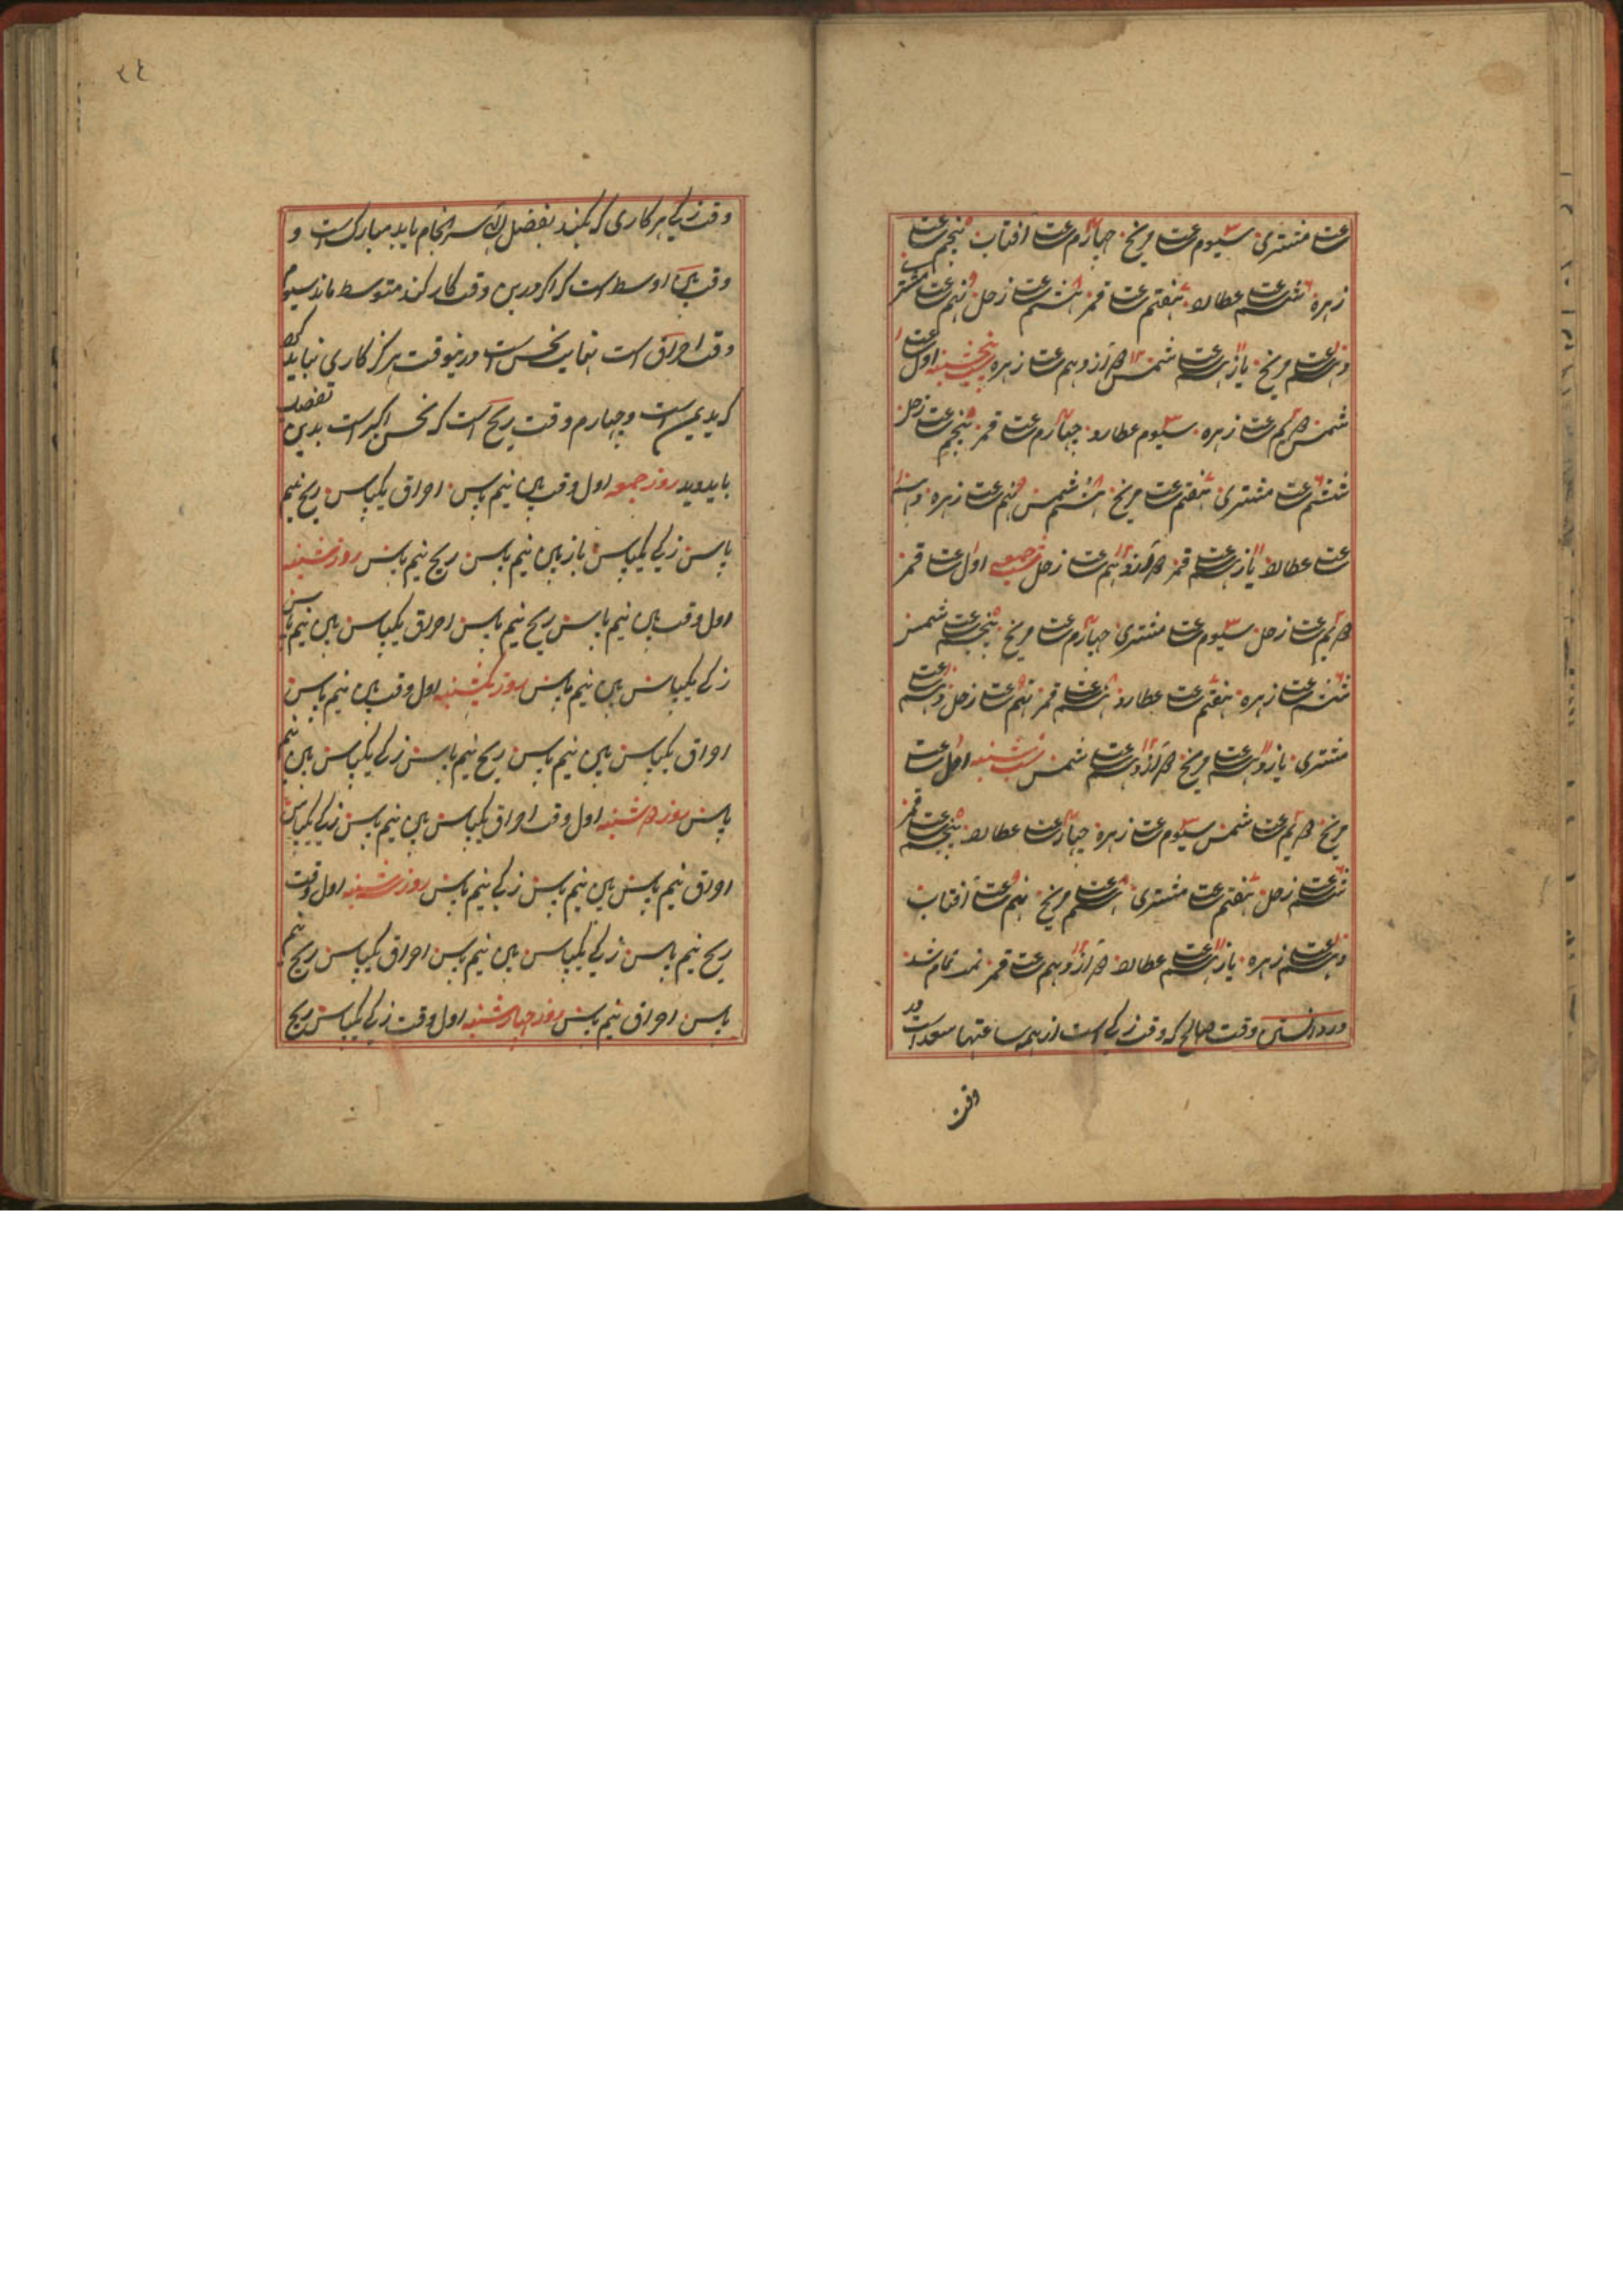 ساعت مشتری سیوم ساعت مریخ چهارم ساعت آفتاب پنجم ساعت
زهره ششم ساعت عطارد هفتم ساعت قمر هشتم ساعت زحل نهم ساعت مشتری
دهم ساعت مریخ یازدهم ساعت شمس دوازدهم ساعت زهره پنجشنبه اول ساعت
شمس دویم ساعت زهره سیوم عطارد چهارم ساعت قمر پنجم ساعت زحل
ششم ساعت مشتری هفتم ساعت مریخ هشتم شمس نهم ساعت زهره دهم
ساعت عطارد یازدهم ساعت قمر دوازدهم ساعت زحل شب جمعه اول ساعت قمر
دویم ساعت زحل سیوم ساعت مشتری چهارم ساعت مریخ پنجم ساعت شمس
ششم ساعت زهره هفتم ساعت عطارد هشتم ساعت قمر نهم ساعت زحل دهم ساعت
مشتری یازدهم ساعت مریخ دوازدهم ساعت شمس شب شنبه اول ساعت
مریخ دویم ساعت شمس سیوم ساعت زهره چهارم ساعت عطارد پنجم ساعت قمر
ششم ساعت زحل هفتم ساعت مشتری هشتم ساعت مریخ نهم ساعت آفتاب
دهم ساعت زهره یازدهم ساعت عطارد دوازدهم ساعت قمر تمت تمام شد
در دانستن وقت صالح که وقت زندگی است از همه ساعتها سعد است
وقت
٢٤
وقت زندگی هر کاری که بکنند بفضل الله سرانجام یابد مبارک است و
وقت اوسط است که اگر درین وقت کار کند متوسط ماند سیوم
وقت احراق است بغایت نحس است درینوقت هرگز کاری نباید کرد
که بدیمن است و چهارم وقت ریح است که نحس اکبر است بدین تفصیل
باید دید روز جمعه اول وقت نیم پاس احراق یکپاس ریح نیم
پاس زندگی یکپاس باز نیم پاس ریح نیم پاس روز شنبه
اول وقت نیم پاس ریح نیم پاس احراق یکپاس نیم پاس
زندگی یکپاس نیم پاس روز یکشنبه اول وقت نیم پاس
احراق یکپاس نیم پاس ریح نیم پاس زندگی یکپاس نیم
پاس روز دوشنبه اول وقت احراق یکپاس نیم پاس زندگی یکپاس
احراق نیم پاس نیم پاس زندگی نیم پاس روز سه شنبه اول وقت
ریح نیم پاس زندگی یکپاس نیم پاس احراق یکپاس ریح نیم
پاس احراق نیم پاس روز چهارشنبه اول وقت زندگی یکپاس ریح